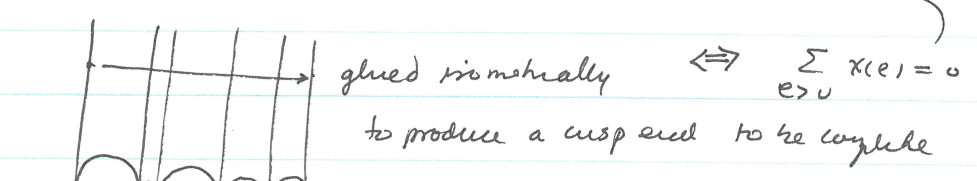 glued isometrically ⟺ ∑ x(e) = 0
e>v
to produce a cusp end to be complete